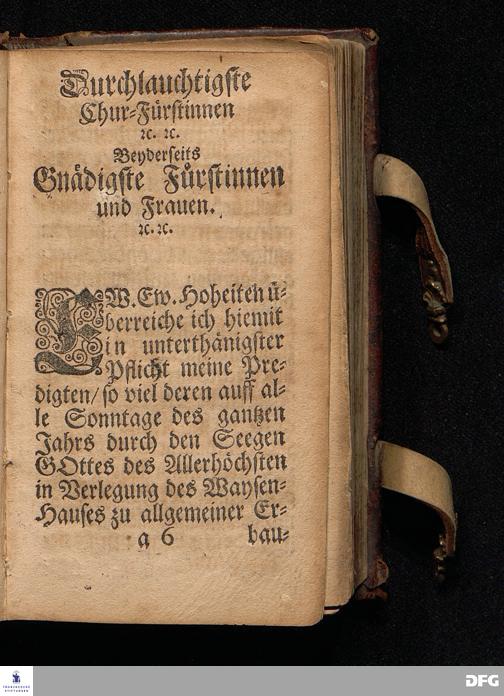 Durchlauchtigste
Chur-Fürstinnen
ꝛc. ꝛc.
Beyderseits
Gnädigste Fürstinnen
und Frauen.
ꝛc. ꝛc.
EW. Ew. Hoheiten ü-
berreiche ich hiemit
in unterthänigster
Pflicht meine Pre-
digten/ so viel deren auff al-
le Sonntage des gantzen
Jahrs durch den Seegen
GOttes des Allerhöchsten
in Verlegung des Waysen-
Hauses zu allgemeiner Er-
a 6 bau-
FRANCKESCHE
STIFTUNGEN
DFG